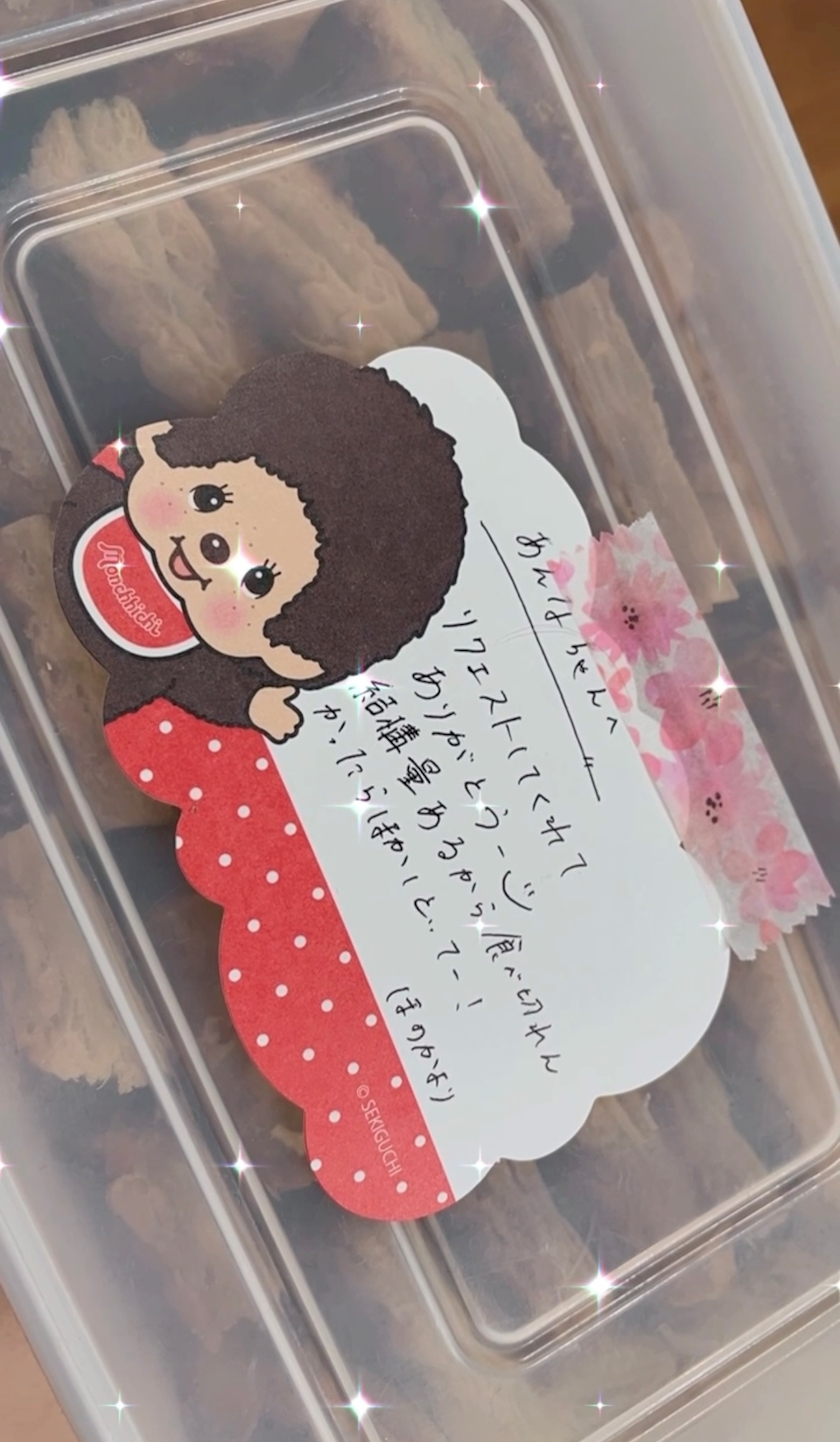 あんなちゃんへ
リクエストしてくれて
ありがとうー
結構量あるから食べ切れん
かったらほかしといてー!
(ほのかより)
Monchhichi
© SEKIGUCHI